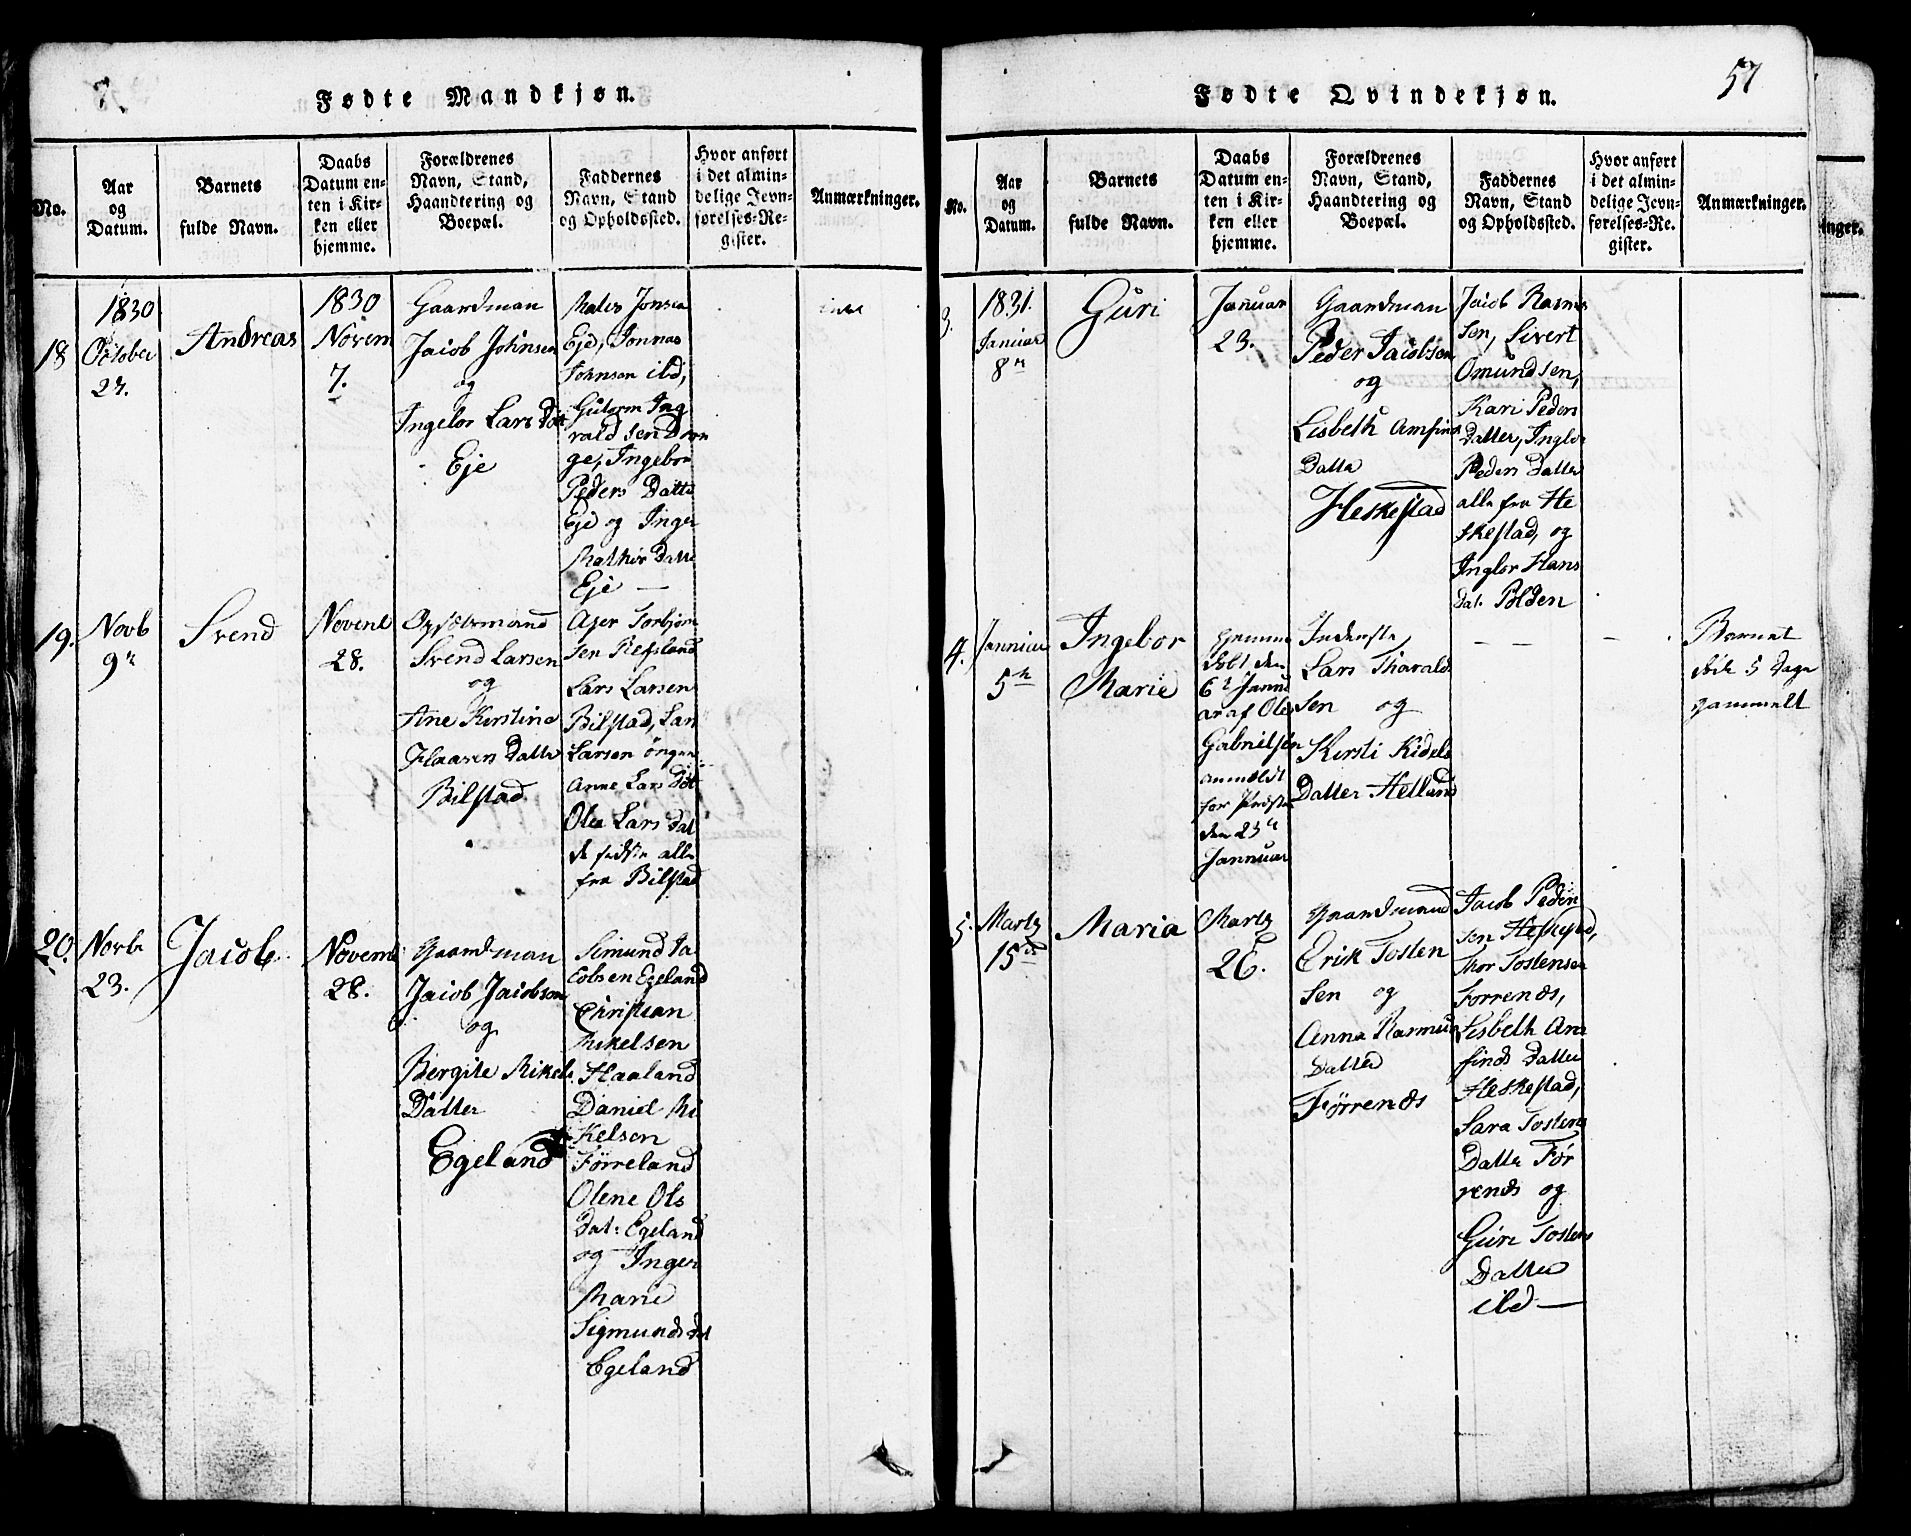 Fødte Mandkjøn.
No.
Aar
og
Datum.
Barnets
fulde Navn.
Daabs
Datum en-
ten i Kir-
ken eller
hjemme.
Forældrenes
Navn, Stand,
Haandtering og
Boepæl.
Faddernes
Navn, Stand
og Opholdssted.
Hvor anført
i det almin-
delige Jevn-
førelses-Re-
gister.
Anmærkninger.
18
1830
October
23.
Andreas
1830
Novem
7.
Gaardman
Jacob Johnsen
og
Ingebor Lars Dot
Eje
Jonsen
Eje, Jonnas
Johnsen ibd,
Gutorm Ing
vald sen Dran
ge, Ingebor
Peders Datte
Eje og Inger
Mathis Datte
Eje —
19.
Novb
9n
Svend
Novemb
28.
Opsidermand
Svend Larsen
og
Ane Kirstine
Klaases Datte
Bilstad
Aser Torbjørn
sen Refsland
Lars Larsen
Bilstad, Lars
Larsen
Anne Lars Dot
Olea Lars Dat
de sidste alle
fra Bilstad
20.
Novbr
23.
Jacob
Novemb
28.
Gaardman
Jacob Jacobsen
og
Bergite Mikels
Datter
Egeland
Simund Ja
cobsen Egeland
Christian
Mikelsen
Haaland
Daniel Mi
kelsen
Førreland
Olene Ols
Dat: Egeland
og Inger
Marie
Sigmunds dat
Egeland
Fødte Qvindekjøn.
57
No.
Aar
og
Datum.
Barnets
fulde Navn.
Daabs
Datum en-
ten i Kir-
ken eller
hjemme.
Forældrenes
Navn, Stand,
Haandtering og
Boepæl.
Faddernes
Navn, Stand
og Opholdssted.
Hvor anført
i det almin-
delige Jevn-
førelses-Re-
gister.
Anmærkninger.
3.
1831.
Januar
8n
Guri
Januar
23.
Gaardman
Peder Jacobsen
og
Lisbeth Amfinds
Datte
Heskestad
Jacob Rasmu
sen, Sivert
Omundsen,
Kari Peders
Datter, Ingbor
Peders Datter
alle fra He
skestad, og
Ingbor Hans
Dat. Polden
4.
Jannuar
5te
Ingebor
Marie
Hjemme
døbt den
6te Janu
ar af Ole
Gabrielsen
anmeldt
for Præsten
den 23de
Jannuar
Inderste
Lars Tharald
sen og
Kirsti Kidels
Datter Helland
— — —
Barnet
blev 5 Dage
gammelt
5.
Marts
15de
Maria
Marts
26.
Gaardmand
Erik Tosten
sen og
Anna Rasmus
Datter
Førrenes
Jacob Peder
sen Heskestad,
Thor Tostensen
Førrenes,
Lisbeth Am
finds Datter
Heskestad,
Sara Tostens
Datte Før
renes og
Guri Tostens
Datter
ibd —